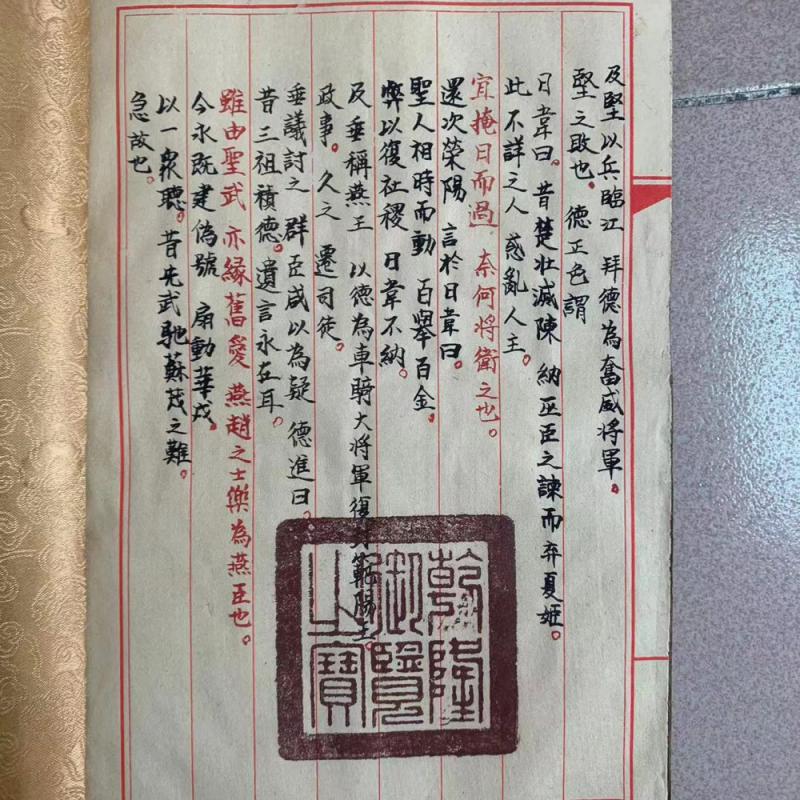 及堅以兵臨江 拜德為奮威將軍。
堅之敗也。德正色謂
日韋曰。昔楚壮滅陳 納巫臣之諫而弃夏姬。
此不詳之人 惑亂人主。
宜掩日而過 奈何將衛之也。
還次榮陽 言於日韋曰。
聖人相時而動 百舉百金。
弊以復社稷 日韋不納。
及垂稱燕王 以德為車騎大將軍復封範陽王。
政事。久之 遷司徒。
垂議討之 群臣咸以為疑 德進曰。
昔三祖積德。遺言永在耳。
雖由聖武 亦緣舊愛 燕趙之士樂為燕臣也。
今永既建偽號 扇動華戎。
以一衆聽。昔光武馳蘇茂之難。
急故也。
乾隆
御覽
之寶